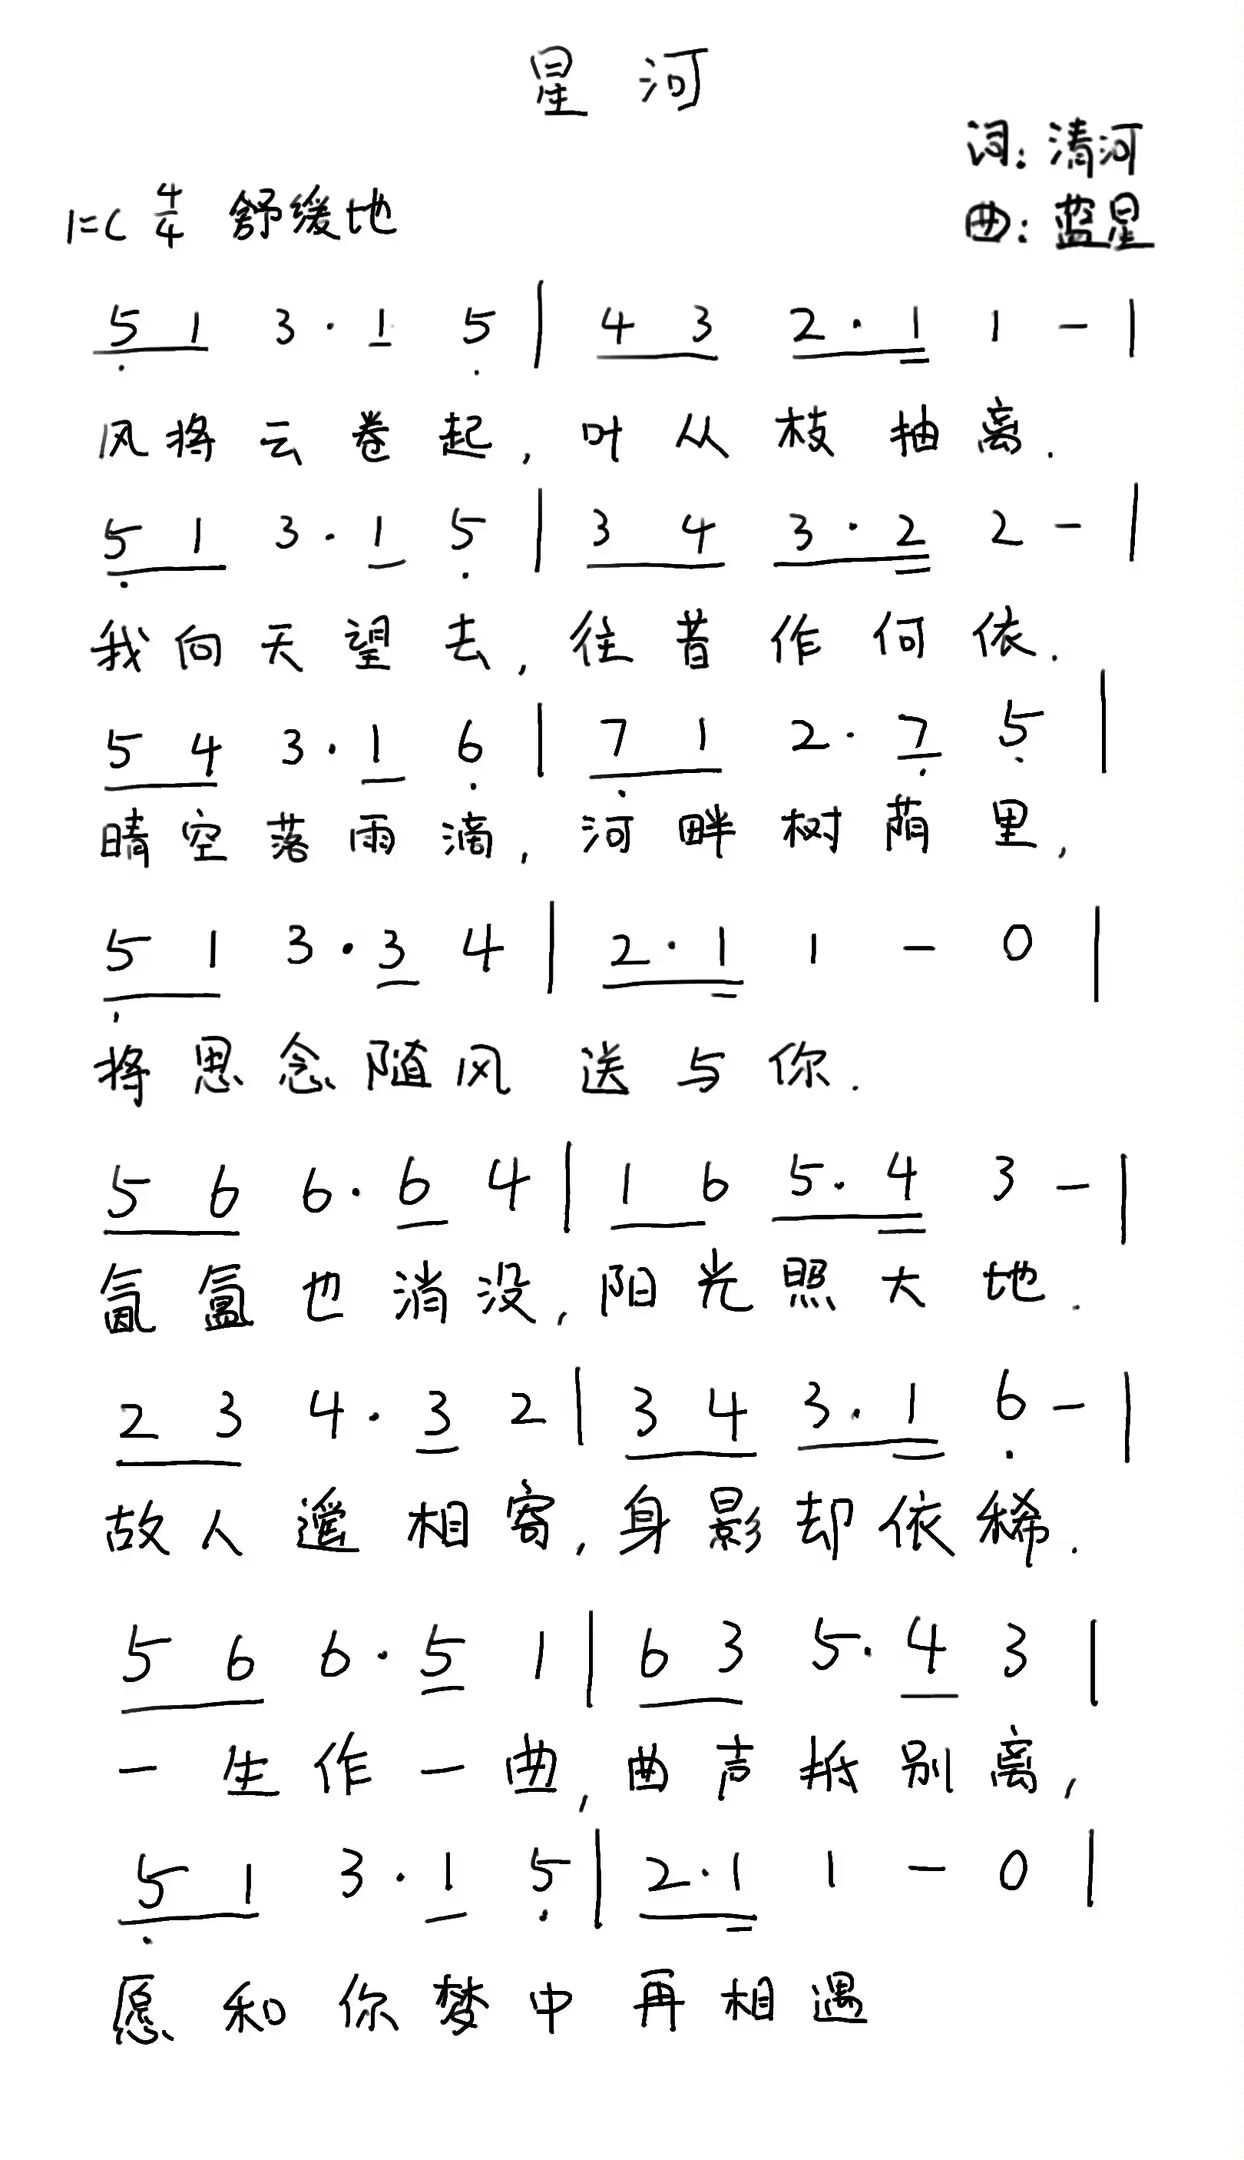 星河
词：清河
1=C 4/4 舒缓地
曲：蓝星
5 1 3·1 5 | 4 3 2·1 1 - |
风将云卷起，叶从枝抽离．
5 1 3·1 5 | 3 4 3·2 2 - |
我向天望去，往昔作何依．
5 4 3·1 6 | 7 1 2·7 5 |
晴空落雨滴，河畔树荫里，
5 1 3·3 4 | 2·1 1 - 0 |
将思念随风送与你．
5 6 6·6 4 | 1 6 5·4 3 - |
氤氲也消没，阳光照大地．
2 3 4·3 2 | 3 4 3·1 6 - |
故人遥相寄，身影却依稀．
5 6 6·5 1 | 6 3 5·4 3 |
一生作一曲，曲声抵别离，
5 1 3·1 5 | 2·1 1 - 0 |
愿和你梦中再相遇